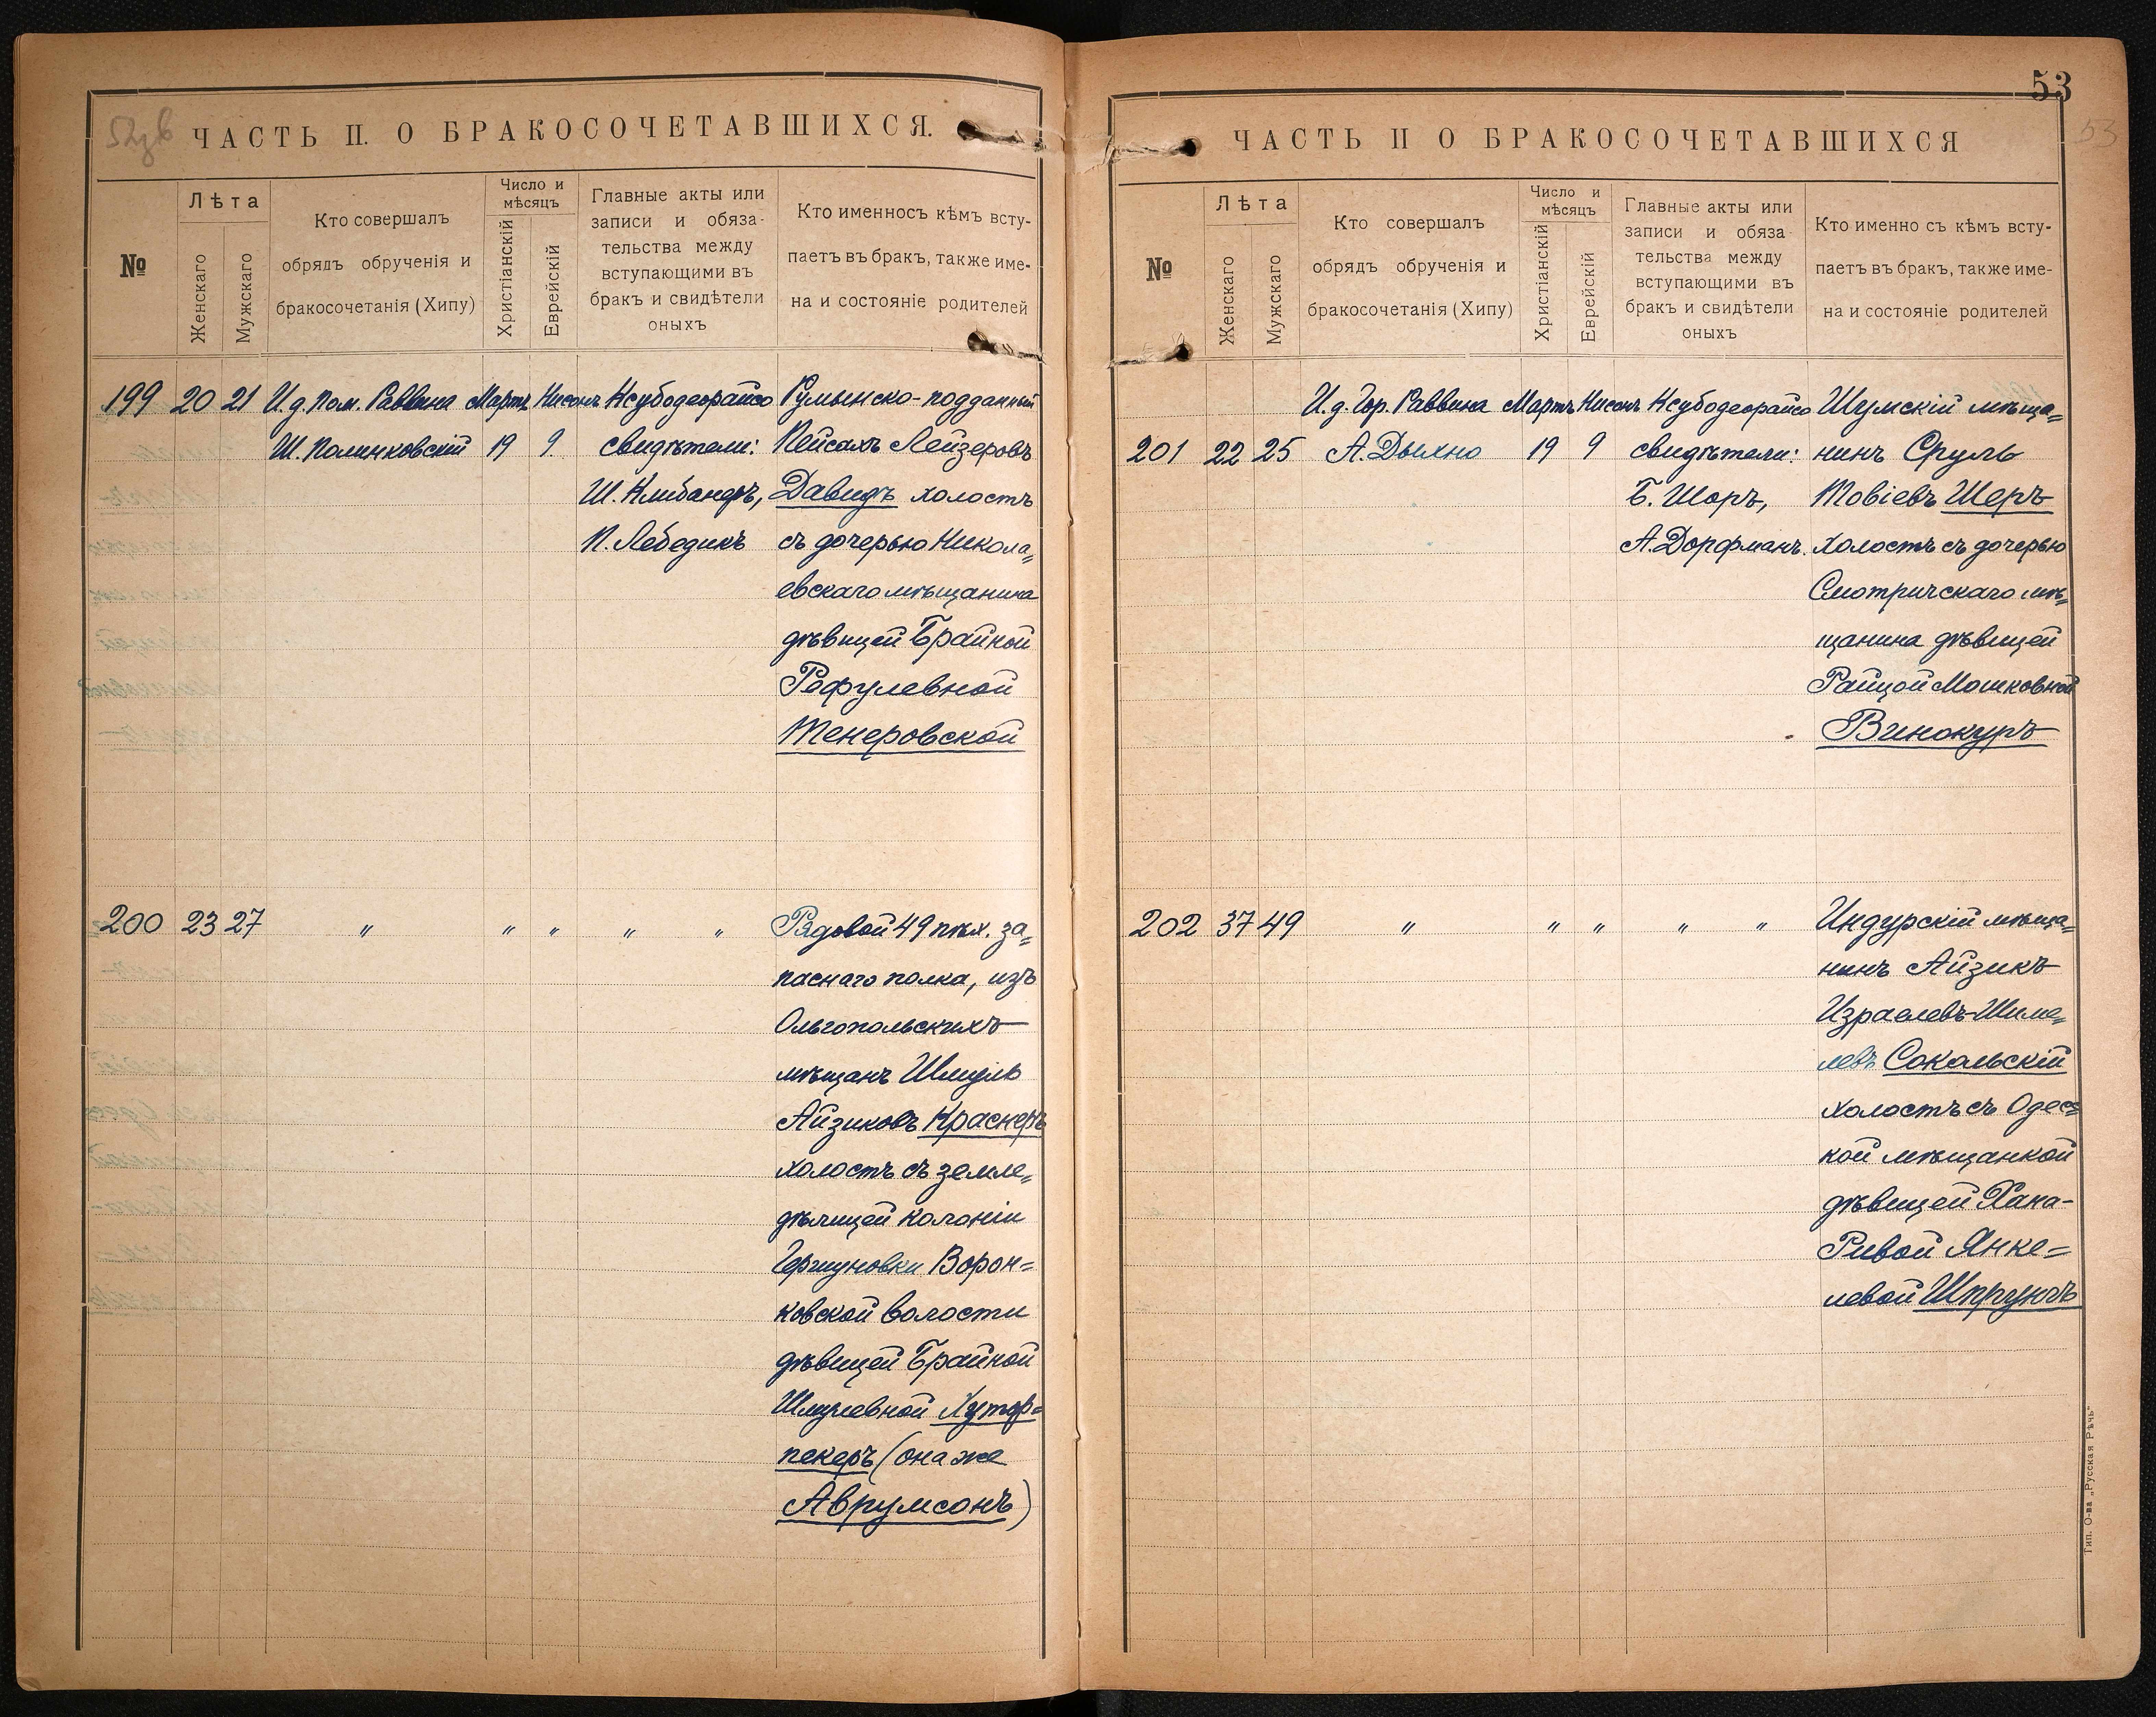 52 об
ЧАСТЬ II. О БРАКОСОЧЕТАВШИХСЯ.
№
Лѣта
Женскаго
Мужскаго
Кто совершалъ
обрядъ обрученія и
бракосочетанія (Хипу)
Число и
мѣсяцъ
Христіанскій
Еврейскій
Главные акты или
записи и обяза-
тельства между
вступающими въ
бракъ и свидѣтели
оныхъ
Кто именносъ кѣмъ всту-
паетъ въ бракъ, также име-
на и состояніе родителей
199 20 21 И.д. Пом. Раввина Мартъ Нисонъ Ксубодеорайсо Румынско-подданный
Ш. Полинковскій 19 9. свидѣтели: Пейсахъ Лейзеровъ
Ш. Клибанеръ, Давидъ холостъ
П. Лебедикъ съ дочерью Никола=
евскаго мѣщанина
дѣвицей Брайной
Рафулевной
Тенеровской
200 23 27 " " " " " Рядовой 49 пѣх. за=
паснаго полка, изъ
Ольгопольскихъ
мѣщанъ Шмуль
Айзиковъ Краснеръ
холостъ съ земле=
дѣлицей колоніи
Гершуновки Ворон=
ковской волости
дѣвицей Брайной
Шмулевной Хутор=
пекеръ (она же
Аврумсонъ)
53
53
ЧАСТЬ II О БРАКОСОЧЕТАВШИХСЯ
№
Лѣта
Женскаго
Мужскаго
Кто совершалъ
обрядъ обрученія и
бракосочетанія (Хипу)
Число и
мѣсяцъ
Христіанскій
Еврейскій
Главные акты или
записи и обяза-
тельства между
вступающими въ
бракъ и свидѣтели
оныхъ
Кто именно съ кѣмъ всту-
паетъ въ бракъ, также име-
на и состояніе родителей
И.д. Гор. Раввина Мартъ Нисонъ Ксубодеорайсо Шумскій мѣща=
201 22 25 А. Дыхно 19 9 свидѣтели: нинъ Сруль
Б. Шоръ, Товіевъ Шеръ
А. Дорфманъ. холостъ съ дочерью
Смотричскаго мѣ=
щанина дѣвицей
Райцой Мошковной
Винокуръ
202 37 49 " " " " " Индурскій мѣща=
нинъ Айзикъ
Израелевъ-Шме=
левъ Сокольскій
холостъ съ Одес=
кой мѣщанкой
дѣвицей Хана-
Ривой Янке=
левой Шпрунчъ
Тип. О-ва „Русская Рѣчь"